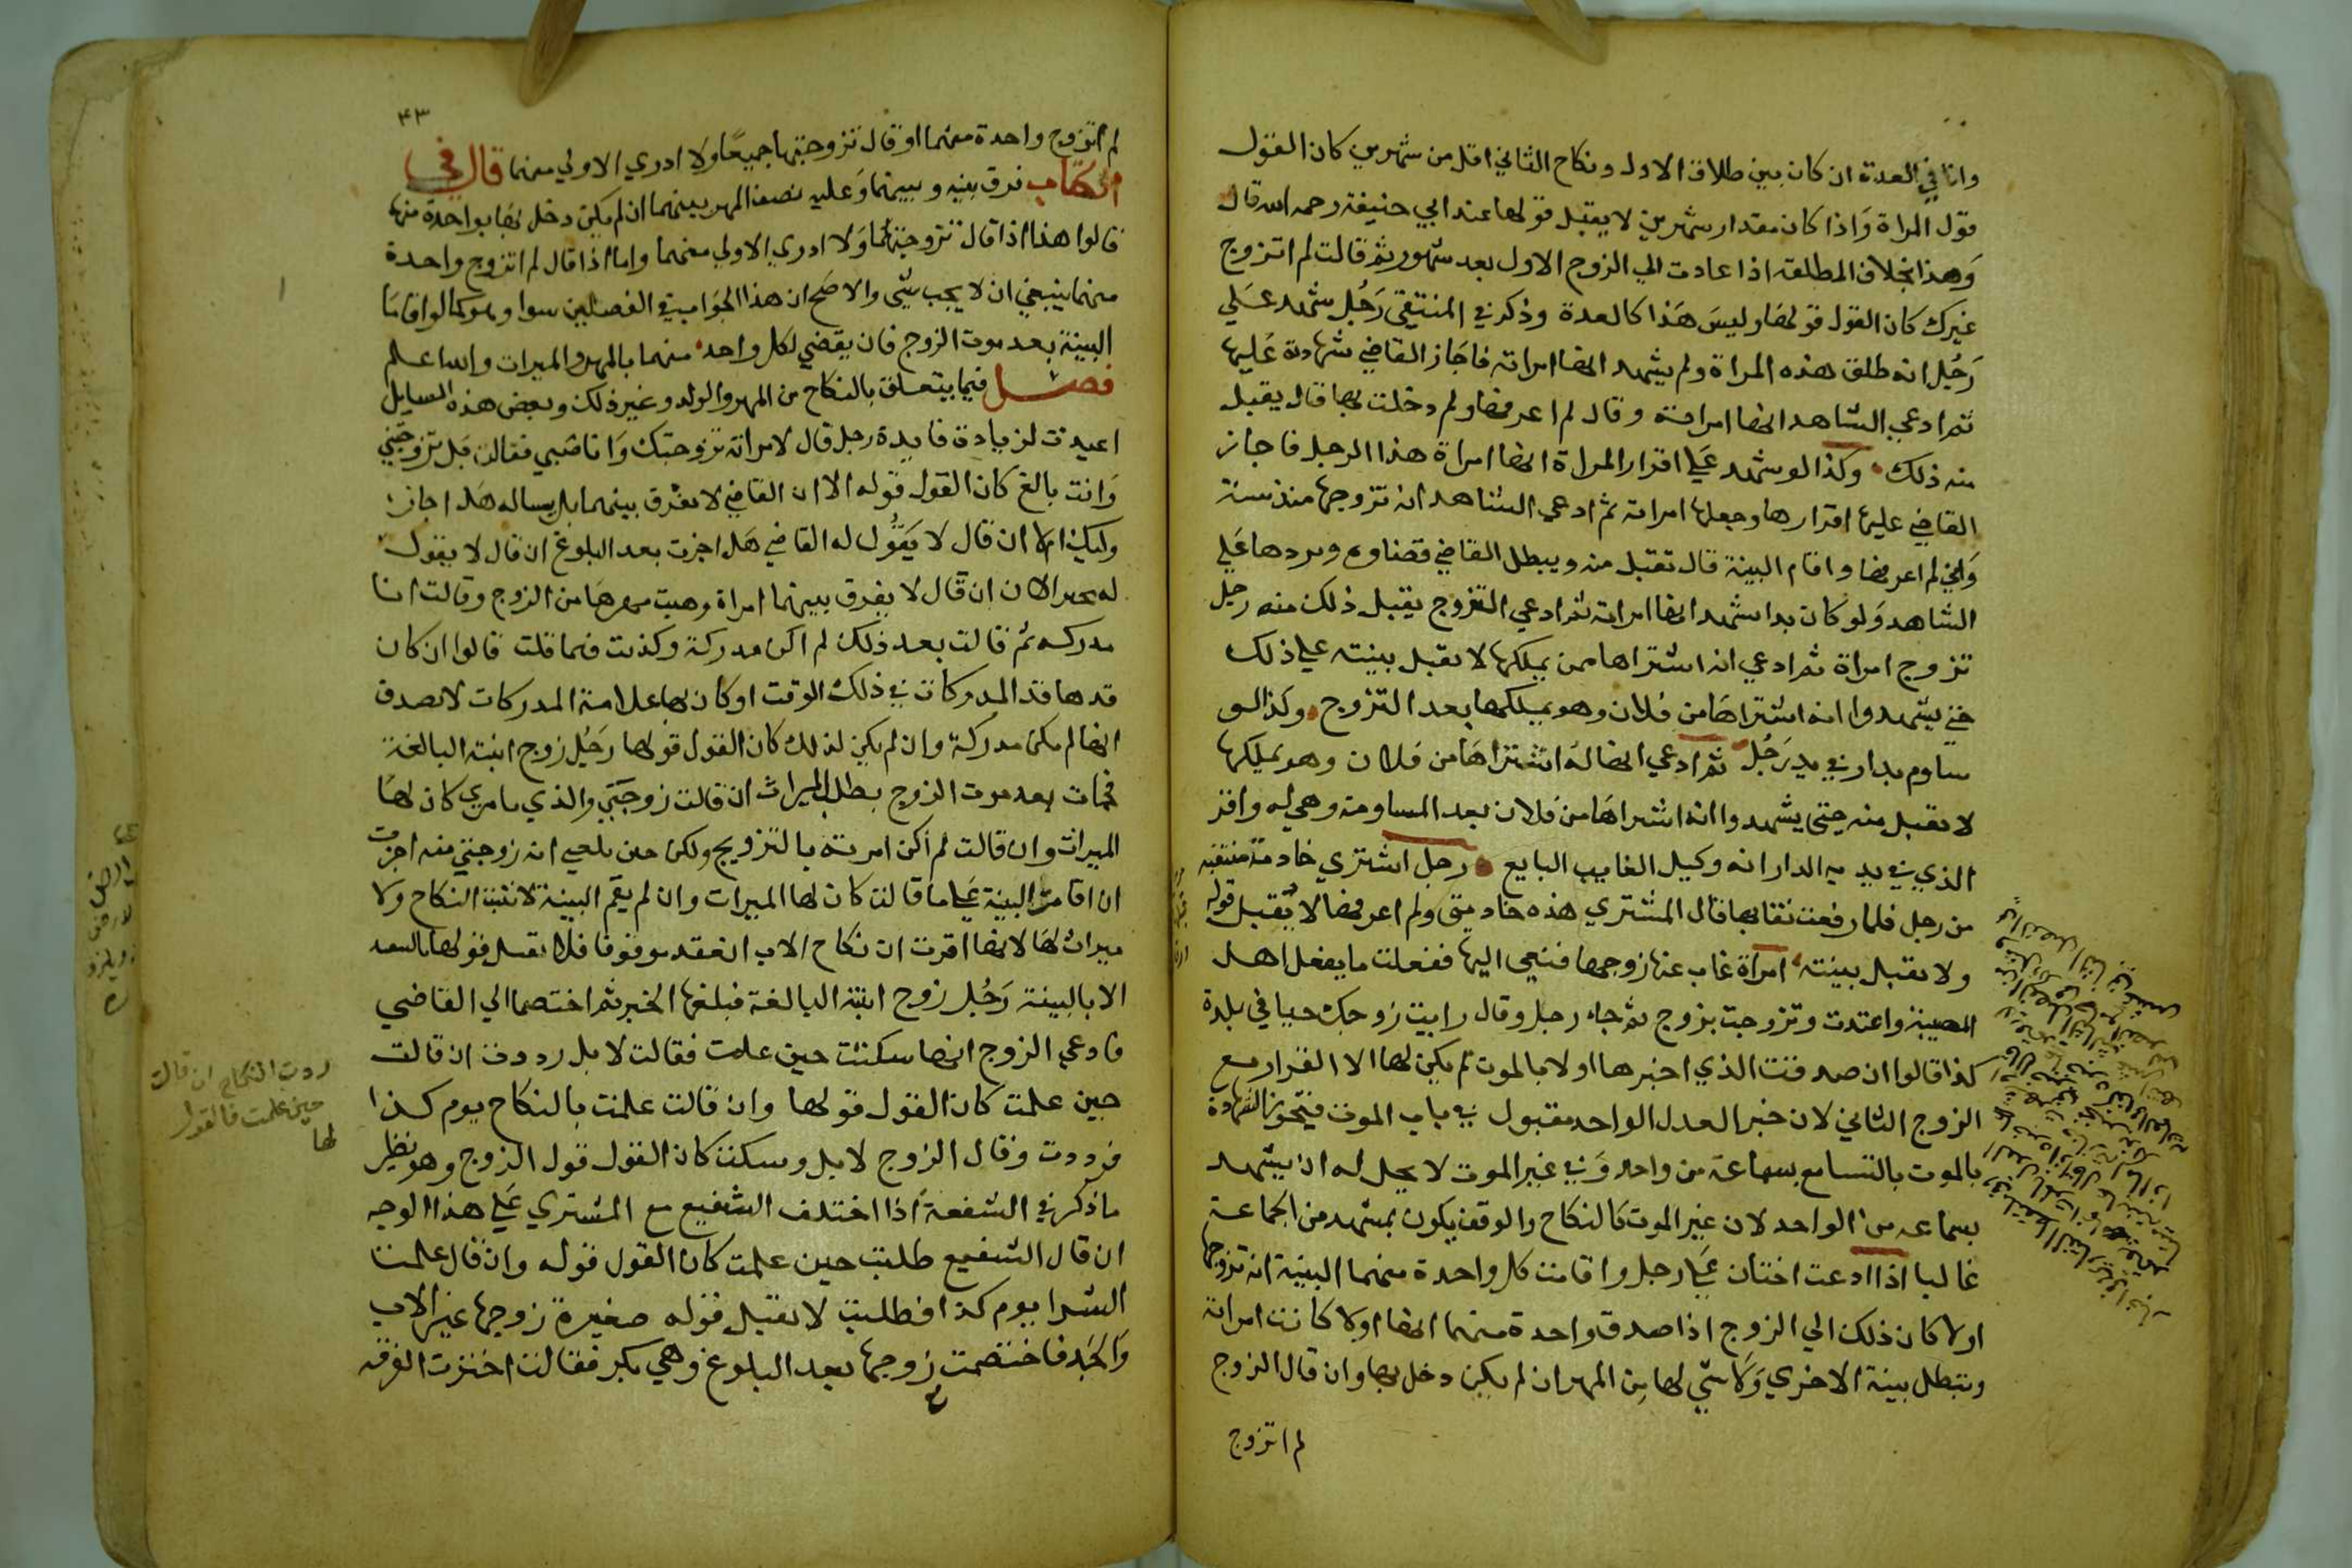 وانا في العدة ان كان بين طلاق الاول ونكاح الثاني اقل من شهرين كان القول
قول المراة وَاذا كان مقدار شهرين لا يقبل قولها عند ابي حنيفة رحمه الله قال
وَهذا بخلاف المطلقة اذا عادت الي الزوج الاول بعد شهور ثم قالت لم اتزوج
غيرك كان القول قولها وليسَ هَذا كالعدة وذكر في المنتقي رَجُل شهد عَلي
رَجُل انه طلق هذه المراة ولم يشهد انها امراته فاجَاز القاضي شهادة عليها
ثم ادعي الشاهد انها امراته وقال لم اعرفها ولم دخلت بها قال يقبل
منه ذلك وكذا لو شهد عَلي اقرار المراة انها امراة هذا الرجل فاجاز
القاضي عليها اقرارها وجعلها امراته ثم ادعي الشاهد انه تزوجها منذ سنة
وَاني لم اعرفها واقام البينة قال تقبل منه ويبطل القاضي قضاوه ويردها عَلي
الشاهد وَلو كان بدا شهد انها امراته ثم ادعي التزوج يقبل ذلك منه رجل
تزوج امراة ثم ادعي انه اشتراها ممن يملكها لا يقبل بينته علي ذلك
حتي يشهدوا انه اشتراهَا من فلان وهو يملكها بعد التزوج وكذا لو
ساوم بدار في يد رَجُل ثم ادعي انها له اشتراهَا من فلان وهو يملكها
لا يقبل منه حتي يشهدوا انه اشتراهَا من فلان بعد المساومة وهي له واقر
الذي في يديه الدار انه وكيل الغايب البايع رجل اشتري خادمة منتقبة
من رجل فلما رفعت نقابها قال المشتري هذه خادمتي ولم اعرفها لا يُقبل قوله
ولا يقبل بينته امرأة غاب عنها زوجها فنعي اليها ففعلت ما يفعل اهل
المصيبة واعتدت وتزوجت بزوج ثم جاء رجل وقال رايت زوجك حيا في بلدة
كذا قالوا ان صدقت الذي اخبرها اولا بالموت لم يكن لها الا القرار مع
الزوج الثاني لان خبر العدل الواحد مقبول في باب الموت فيتجوز الشهادة
بالموت بالتسامع بسماعة من واحد وَفي غير الموت لا يحل له ان يشهد
بسماعه من الواحد لان غير الموت كالنكاح والوقف يكون بمشهد من الجماعة
غالبا اذا ادعت اختان عَلي رجل واقامت كل واحدة منهما البينة انه تزوجها
اولا كان ذلك الي الزوج اذا صدق واحدة منهما انها اولا كانت امراته
وتبطل بينة الاخري وَلا شي لها من المهر ان لم يكن دخل بها وان قال الزوج
لم اتزوج
٤٣
لم اتزوج واحدة منهما او قال تزوجتهما جميعًا ولا ادري الاولي منهما قال في
الكتاب فرق بينه وبينهما وَعليه نصف المهر بينهما ان لم يكن دخل بها بواحدة منها
قالوا هذا اذا قال تزوجتهما وَلا ادري الاولي منهما واما اذا قال لم اتزوج واحدة
منهما ينبغي ان لا يجب شي والاصَح ان هذا الجواب في الفصلين سوا وهو كما لو اقامَا
البينة بعد موت الزوج فان يقضي لكل واحد منهما بالمهر والميراث والله اعلم
فصل فيما يتعلق بالنكاح من المهر والولد وغير ذلك وبعض هذه المسايل
اعيدت لزيادة فايدة رجل قال لامراته تزوجتك وَانا صبي فقالت بَل تزوجتني
وَانت بالغ كان القول قوله الا ان القاضي لا يفرق بينهما بل يساله هَل اجاز
وليك ام لا ان قال لا يَقُول له القاضي هَل اجزت بعد البلوغ ان قال لا يقول
له الان ان قال لا يفرق بينهما امراة وهبت مهرهَا من الزوج وقالت انا
مدركه ثم قالت بعد ذلك لم اكن مدركة وكذبت فيما قلت قالوا ان كان
قدها قد المدركات في ذلك الوقت او كان بها علامة المدركات لا تصدق
انها لم تكن مدركة وان لم يكن لذلك كان القول قولها رَجُل زوج ابنته البالغة
فمات بعد موت الزوج بطلب الميراث ان قالت زوجتي والذي بامري كان لهَا
الميراث وان قالت لم اكن امرته بالتزويج ولكن حين بلغني انه زوجني منه اجزت
ان اقامت البينة عَلي ما قالت كان لها الميراث وان لم يقم البينة لا يثبت النكاح ولا
ميراث لها لانها اقرت ان نكاح الاب انعقد موقوفا فلا يقبل قولها بالنفاذ
الا بالبينة رَجُل زوج ابنته البالغة فبلغها الخبر ثم اختصما الي القاضي
فادعي الزوج انها سكتت حين علمت فقالت لا بل رددت ان قالت
حين علمت كان القول قولها وان قالت علمت بالنكاح يوم كذا
فرددت وقال الزوج لا بل وسكتت كان القول قول الزوج وهو نظير
ما ذكر في الشفعة اذا اختلف الشفيع مع المشتري عَلي هذا الوجه
ان قال الشفيع طلبت حين علمت كان القول قوله وان قال علمت
الشرا يوم كذا فطلبت لا يقبل قوله صغيرة زوجها غير الاب
وَالجَد فاختصمت زوجها بعد البلوغ وهي بكر فقالت اخترت الفرقة
ردت النكاح ان قالت
حين علمت فالقول
لها